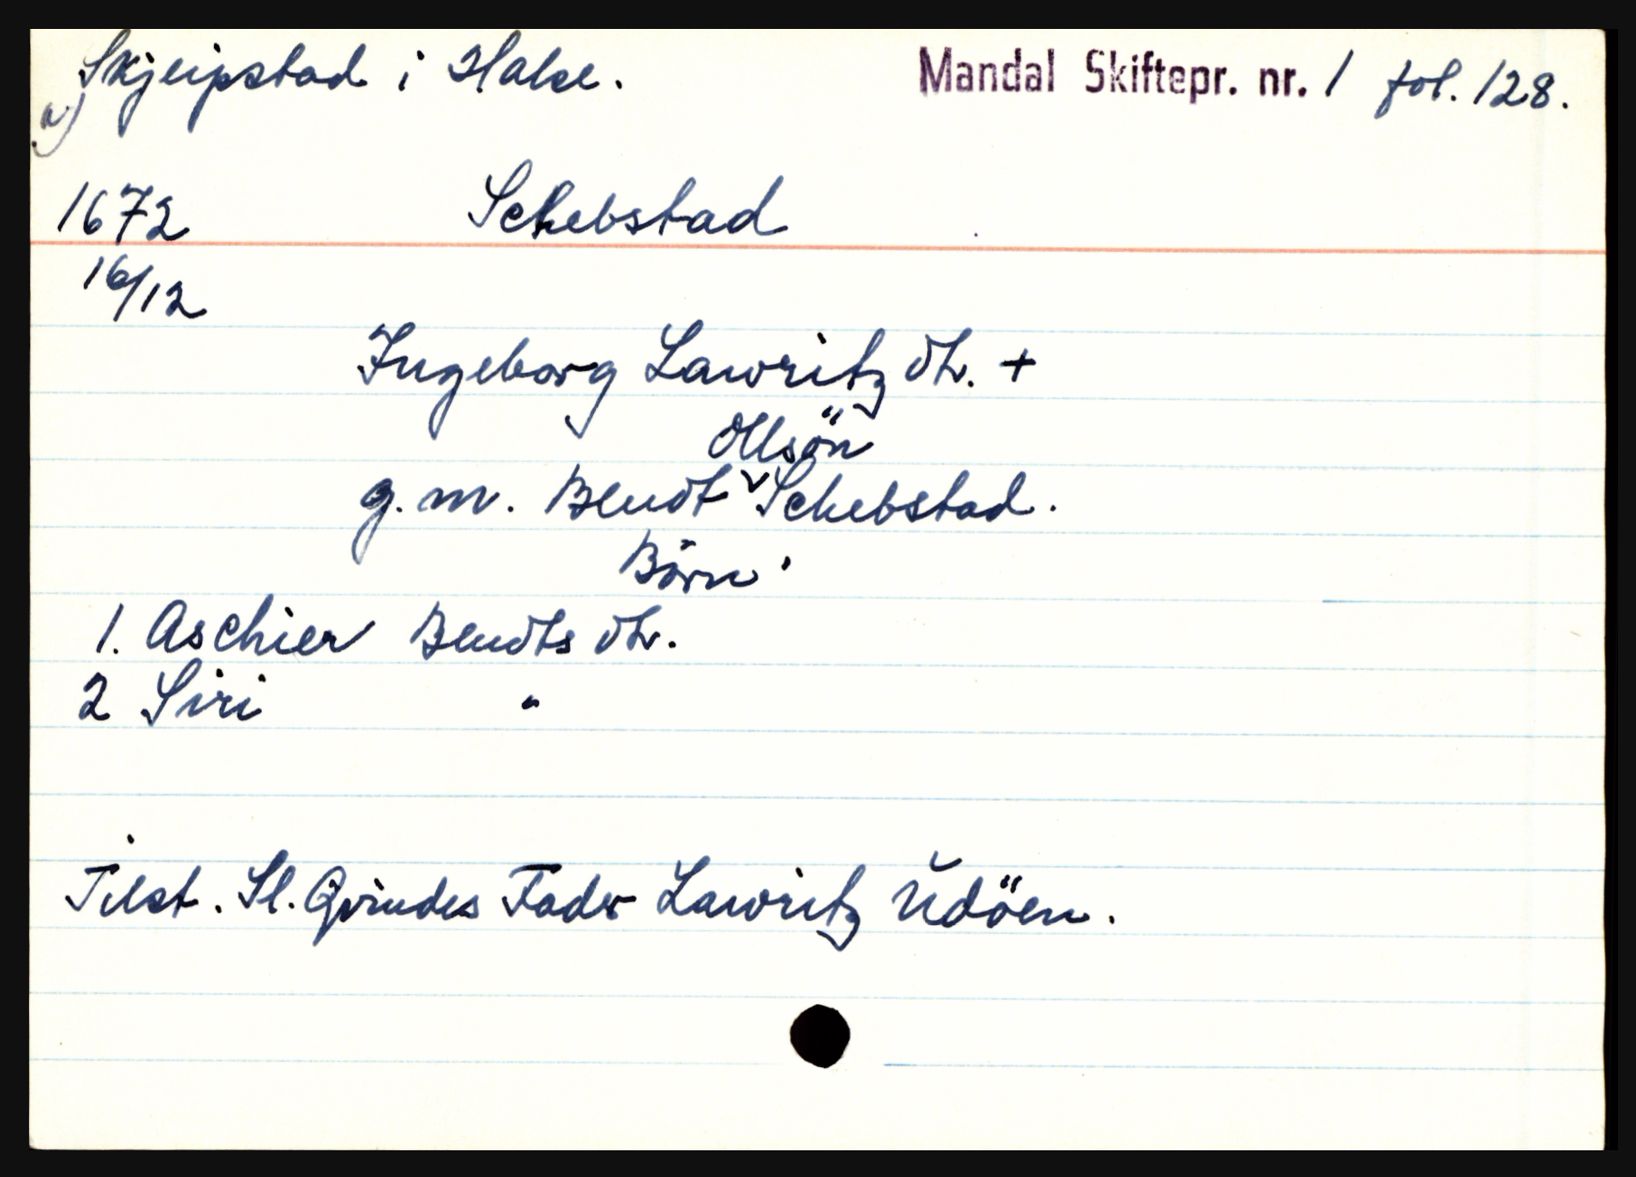 Skjeipstad i Halse. Mandal Skiftepr. nr. 1 fol. 128.
a)
1672 Schebstad
16/12
Ingeborg Lawritz dtr. +
Ollsön
g. m. Bendt v Schebstad.
Börn.
1. Aschier Bendts dtr.
2 Siri "
Tilst. Sl. Qvindes Fader Lawritz Ŭdöen.